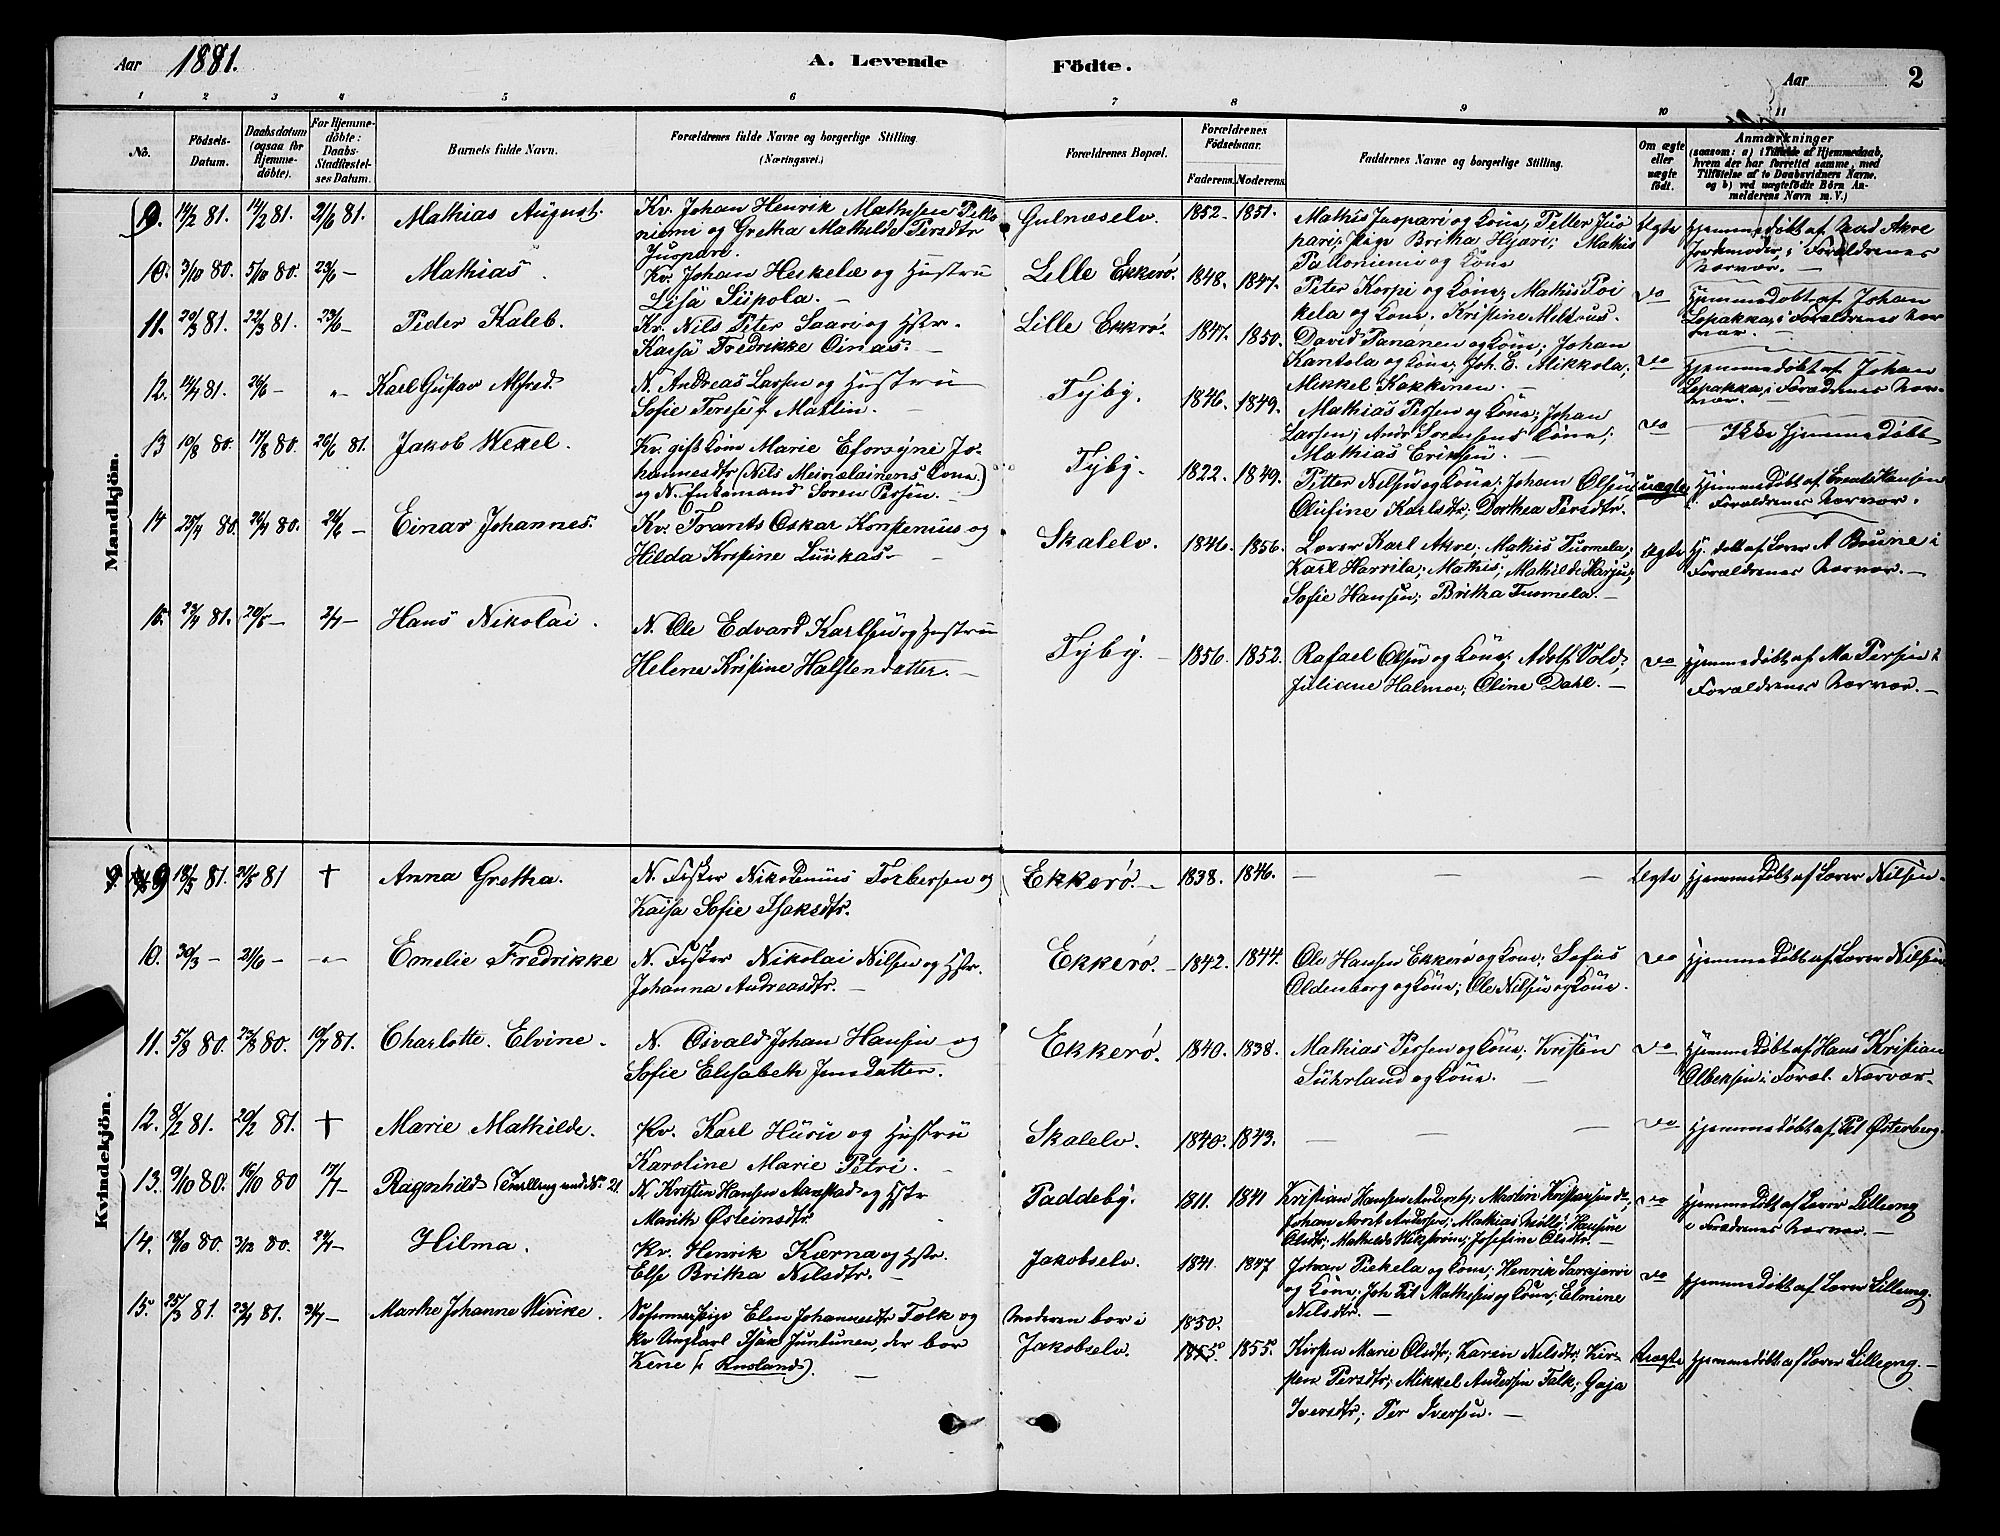 Aar 1881. A. Levende Födte. Aar 2
1 2 3 4 5 6 7 8 9 10 11
No.
Födsels-
Datum.
Daabsdatum
(ogsaa for
Hjemme-
döbte).
For Hjemme-
döbte:
Daabs-
Stadfæstel-
ses Datum.
Barnets fulde Navn.
Forældrenes fulde Navne og borgerlige Stilling.
(Næringsvei.)
Forældrenes Bopæl.
Forældrenes
Födselsaar.
Faderens. Moderens.
Faddernes Navne og borgerlige Stilling.
Om ægte
eller
uægte
födt.
Anmærkninger
(saasom: a) i Tilfælde af Hjemmedaab,
hvem der har forrettet samme, med
Tilföielse af to Daabsvidners Navne.
og b) ved uægtefödte Börn An-
melderens Navn m. V.)
Mandkjön.
9. 14/2 81. 14/2 81. 21/6 81. Mathias August.
Kv. Johan Henrik Mathisen Pello
niemi og Gretha Mathilde Persdtr
Juopari.
Gulnæselv. 1852. 1851.
Mathis Juopari og Kone; Petter Juo
pari; Pige Britha Hjari; Mathis
Pelloniemi og Kone
Ægte
Hjemmedøbt af Akre
Jordemoder, i Forældrenes
Nærvær. —
10. 3/10 80. 5/10 80. 23/6 — Mathias.
Kv. Johan Heskela og Hustru
Lisa Siipola. —
Lille Ekkerø. 1848. 1847.
Peter Korpi og Kone; Mathis Poi
kela og Kone. Kristine Meltrus.
do
Hjemmedøbt af Johan
Lepakka, i Forældrenes Nær
vær. —
11. 20/3 81. 22/3 81. 23/6 — Peder Kaleb.
Kv. Nils Peter Saari og Hstr.
Kaisa Fredrikke Oinas. —
Lille Ekkerø. 1847. 1850.
David Pananen og Kone; Johan
Kantola og Kone, Joh. E. Mikkola;
Mikkel Kakkinen. —
do
Hjemmedøbt af Johan
Lepakka, i Forædrenes Nær-
vær. —
12. 14/4 81. 26/6 — „ Karl Gustav Alfred.
N. Andreas Larsen og Hustru
Sofie Terese f. Matlin. —
Tyby. 1846. 1849.
Mathias Persen og Kone; Johan
Larsen; Andr. Sorensens Kone;
Mathias Eriksen. —
do
Ikke Hjemmedøbt
13 10/8 80. 17/8 80. 26/6 81. Jakob Wexel.
Kv. gift Kone Marie Eforsyne Jo-
hannesdtr. (Nils Meinelainens Kone)
og N. Enkemand Soren Persen. —
Tyby. 1822. 1849.
Petter Nilsen og Kone; Johan Olsen
Olufine Karlsdtr; Dorthea Persdtr.
uægte
Hjemmedøbt af Hansen
i Forældrenes Nærvær.
14 25/4 80. 26/4 80. 26/6 — Einar Johannes.
Kv. Frants Oskar Konpenius og
Hilda Kristine Luukas —
Skalelv. 1846. 1856.
Lærer Karl Akre; Mathis Tuomela;
Karl Harrila; Mathis; Mathilde Harju;
Sofie Hansen; Britha Tuomela. —
Ægte
Hj. døbt af Lærer A Brune i
Forældrenes Nærvær. —
15. 23/4 81. 20/5 — 2/7 — Hans Nikolai.
N. Ole Edvard Karlsen og Hustru
Helene Kristine Halstendatter. —
Tyby. — 1856. 1852.
Rafael Olsen og Kone; Adolf Vold;
Juliane Halmoe; Oline Dahl. —
do
Hjemmedøbt af Ma Persen i
Forældrenes Nærvær. —
Kvindekjön.
9 18/5 81. 21/5 81 † Anna Gretha.
N. Fisker Nikodemus Torbersen og
Kaisa Sofie Isaksdtr.
Ekkerø. — 1838. 1846.
— — —
Ægte Hjemmedøbt af Lærer Nilsen.
10. 30/3 — 21/6 — „ Emelie Fredrikke
N. Fisker Nikolai Nilsen og Hstr.
Johanna Andreasdtr. —
Ekkerø. — 1842. 1844.
Ole Hansen Ekkerø og Kone; Sofus
Oldenborg og Kone; Ole Nilsen og Kone.
do Hjemmedøbt af Lærer Nilsen
11. 5/8 80. 23/8 80. 10/7 81. Charlotte Elvine.
N. Osvald Johan Hansen og
Sofie Elisabeth Jensdatter.
Ekkerø. 1840. 1838.
Mathias Persen og Kone; Kristen
Suhrland og Kone. —
do
Hjemmedøbt af Hans Kristian
Olbeksen i Foræl. Nærvær —
12. 8/2 81. 20/2 81. † Marie Mathilde.
Kv. Karl Huru og Hustru
Karoline Marie Petri. —
Skalelv. 1840. 1843.
— — —
do Hjemmedøbt af Pet Østerberg.
13. 9/10 80. 16/10 80 17/7 — Ragnhild (Tvilling med No. 21.
N. Kristen Hansen Aanstad og Hstr
Marith Østeinsdtr.
Paddeby. 1811. 1841
Kristian Hansen; Martin Kristansen do;
Johan Arnt Andersen; Mathias Moli; Hansine
Olsdtr; Mathilde Vikstrøm; Josefine Olsdtr. —
do
Hjemmedøbt af Lærer Lilleeng
i Foræd­renes Nærvær. —
14. 18/10 80. 3/12 80. 24/7 — Hilma.
Kv. Henrik Kærna og Hstr.
Else Britha Nilsdtr. —
Jakobselv. 1841. 1847
Johan Piekela og Kone; Henrik Sarajervi
og Kone; Joh Pet Mathisen og Kone; Elmine
Nilsdtr. —
do Hjemmedøbt af Lærer Lilleeng.
15. 25/3 81. 23/4 81. 31/7 — Marthe Johanne Vivike.
Ellen Johannesdtr Falk og
Kv Ungkarl Isak Juntunen, der bor
Kene (i Rusland). —
Moderen bor i
Jakobselv.
1850.
1855. 1855.
Kirsten Marie Olsdtr; Karen Nilsdtr; Kir-
sten Persdtr; Mikkel Andersen Falk; Gaja
Iversdtr; Per Iversen. —
Uægte Hjemmedøbt af Lærer Lilleeng. —